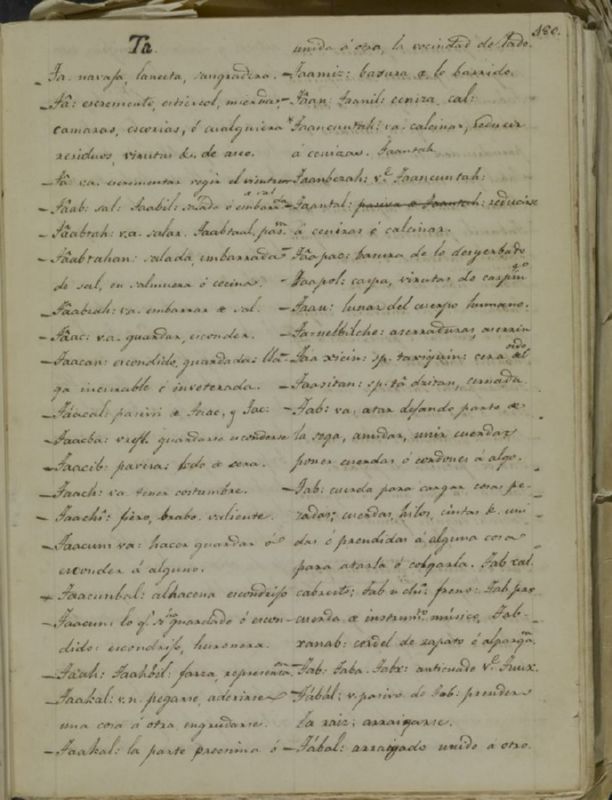 480.
Ta.
Ta. navaja, lanceta, sangradera.
Tâ: escremento, estiercol, mierdas
camaras, escorias, ó cualquiera
residuos, virutas &. de aseo.
Tâ va. escrementar
Tâab: sal: Taabil: salado ó embarro
Tâabtah: v.a. salar. Taabtaul, pas.
Tâabtahan: salada, embarrada
de sal, en salmuera ó cecina.
Tâabtah: va. embarrar de sal.
Tâac: va. guardar, esconder.
Taacan: escondido, guardada: lla-
ga incurable é inveterada.
Táacal: pasivo de Taac, y Tac:
Taacba: v refl. guardarse esconderse
Taacib: pavesa: lodo de cera.
Taach: va. tener costumbre.
Taachí: fiero, brabo. valiente.
Taacuns va: hacer guardar ó
esconder á alguno.
Taacunbal: alhacena escondrijo
Taacun: lo qe. se guardado ó escon-
dido: escondrijo, huronera.
Taah: Taahbil: farza, representon.
Taakal: v.n. pegarse, aderirse
una cosa á otra engrudarse.
Taakal: la parte procsima ó
unida á otra, la vecindad de lado.
Taamiz: basura de lo barrido.
Tâan: Taanil: ceniza, cal:
Taancuntah: va. calcinar, reducir
á cenizas. Taantah
Taanbezah: ve. Taancuntah:
Taantal: pasiva de Taantah: reducirse
á cenizas é calcinar.
Tâapac: basura de lo desyerbado
Taapol: caspa, virutas de carpinto
Taau: lunar del cuerpo humano.
Ta-nelbilche: aserraduras, aserrin
Taa xicin: sp. taxiquin: cera del oido.
Taasitan: sp. tâ dzitan, cernada
Tab: va. atar dejando parte de
la soga, anudar, unir cuerdas
poner cuerdas ó cordones á algo.
Tab: cuerda para cargar cosas pe-
zadas; cuerdas, hilos, cintas &. uni-
das é prendidas á alguna cosa
para atarla ó colgarla. Tab cal:
cabestro; Tab u chi: freno: Tab pax
cuerda de instrumto. músico, Tab-
xanab: cordel de zapato é alpargata.
Tab: Taba. Tabx: anticuado ve. Tuux.
Tábál; v. pasivo de Tab: prender
la raiz: arraigarse.
Tábal: arraigado unido á otro.